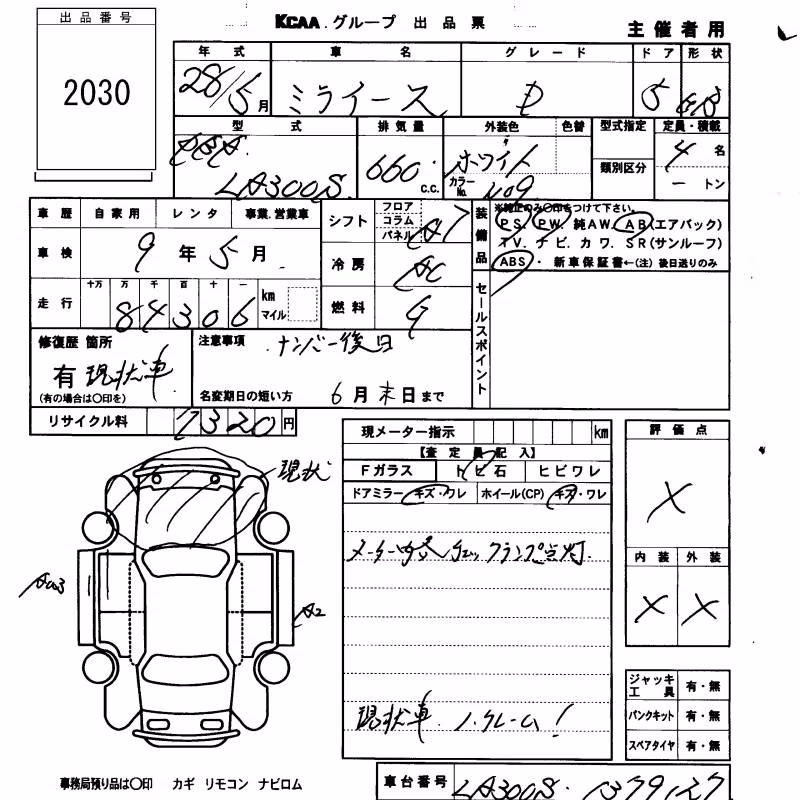 出品番号
2030
KCAA.グループ 出品票
主催者用
年式 車名 グレード ドア 形状
28/5月 ミライース D 5 HB
型式 排気量 外装色 色替 型式指定 定員・積載
DBA
LA300S 660 c.c. ホワイト 4名
カラーNo. W09 類別区分 一トン
車歴 自家用 レンタ 事業.営業車
車検 9年5月
走行 十万 万 千 百 十 一 km マイル
84306
シフト フロア コラム パネル A7
冷房 AC
燃料 G
装備品 ※純正のみ〇印をつけて下さい。
PS. PW. 純AW. AB(エアバック)
TV. ナビ. カワ. SR(サンルーフ)
ABS・新車保証書←(注)後日送りのみ
セールスポイント
修復歴 箇所
有 現状車
(有の場合は〇印を)
注意事項 ナンバー後日
名変期日の短い方 6月末日まで
リサイクル料 7320円
現メーター指示 km
【査定員記入】
Fガラス トビ石 ヒビワレ
ドアミラー キズ・ワレ ホイール(CP) キズ・ワレ
メーター内 チェックランプ点灯.
現状車. ノークレーム!
評価点
X
内装 外装
X X
ジャッキ工具 有・無
パンクキット 有・無
スペアタイヤ 有・無
現状
A2
事務局預り品は〇印 カギ リモコン ナビロム
車台番号 LA300S-1379127